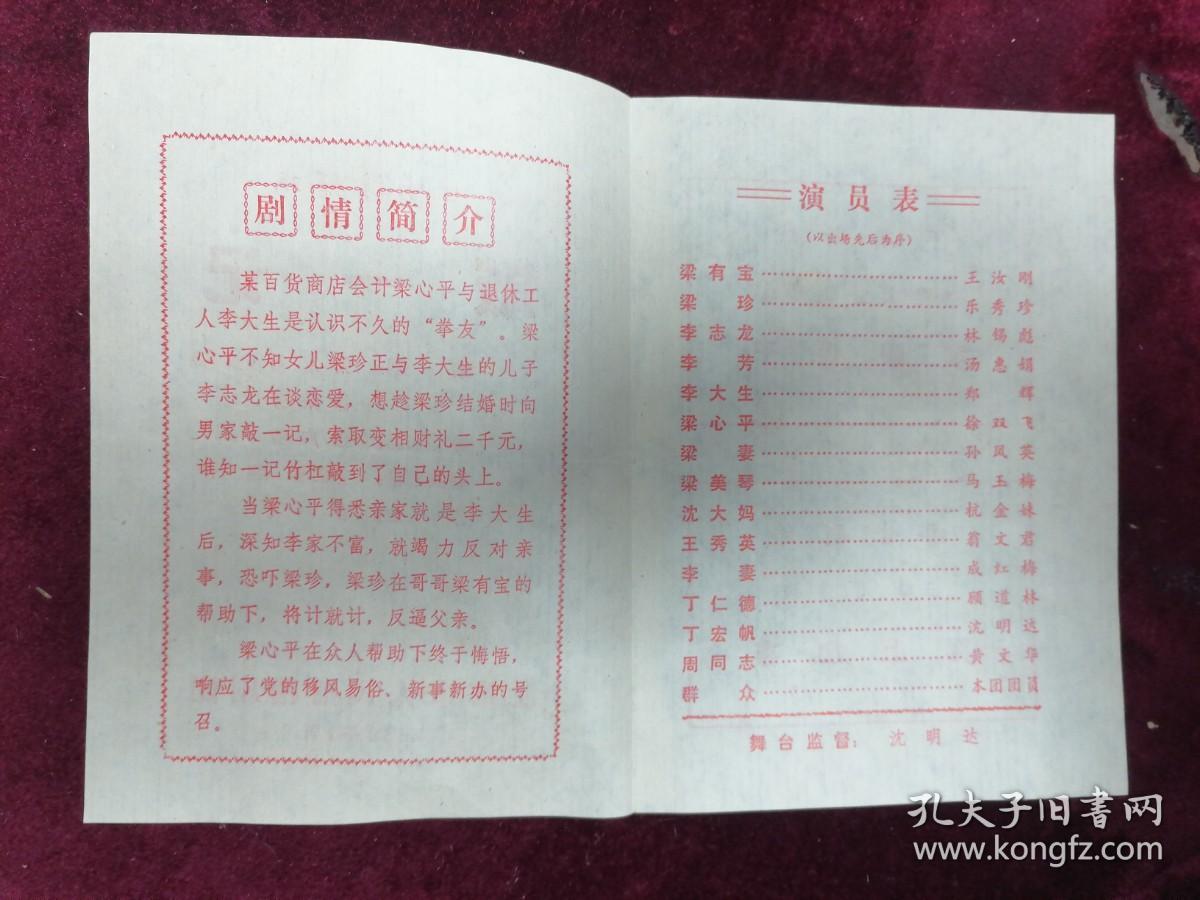 剧情简介
某百货商店会计梁心平与退休工
人李大生是认识不久的“拳友”。梁
心平不知女儿梁珍正与李大生的儿子
李志龙在谈恋爱，想趁梁珍结婚时向
男家敲一记，索取变相财礼二千元，
谁知一记竹杠敲到了自己的头上。
当梁心平得悉亲家就是李大生
后，深知李家不富，就竭力反对亲
事，恐吓梁珍，梁珍在哥哥梁有宝的
帮助下，将计就计，反逼父亲。
梁心平在众人帮助下终于悔悟，
响应了党的移风易俗、新事新办的号
召。
演员表
（以出场先后为序）
梁有宝…………王汝刚
梁珍…………乐秀珍
李志龙…………林锡彪
李芳…………汤惠娟
李大生…………郑辉
梁心平…………徐双飞
梁妻…………孙凤英
梁美琴…………马玉梅
沈大妈…………杭金妹
王秀英…………翁文君
李妻…………成红梅
丁仁德…………顾道林
丁宏帆…………沈明达
周同志…………黄文华
群众…………本团团员
舞台监督：沈明达
孔夫子旧书网
www.kongfz.com